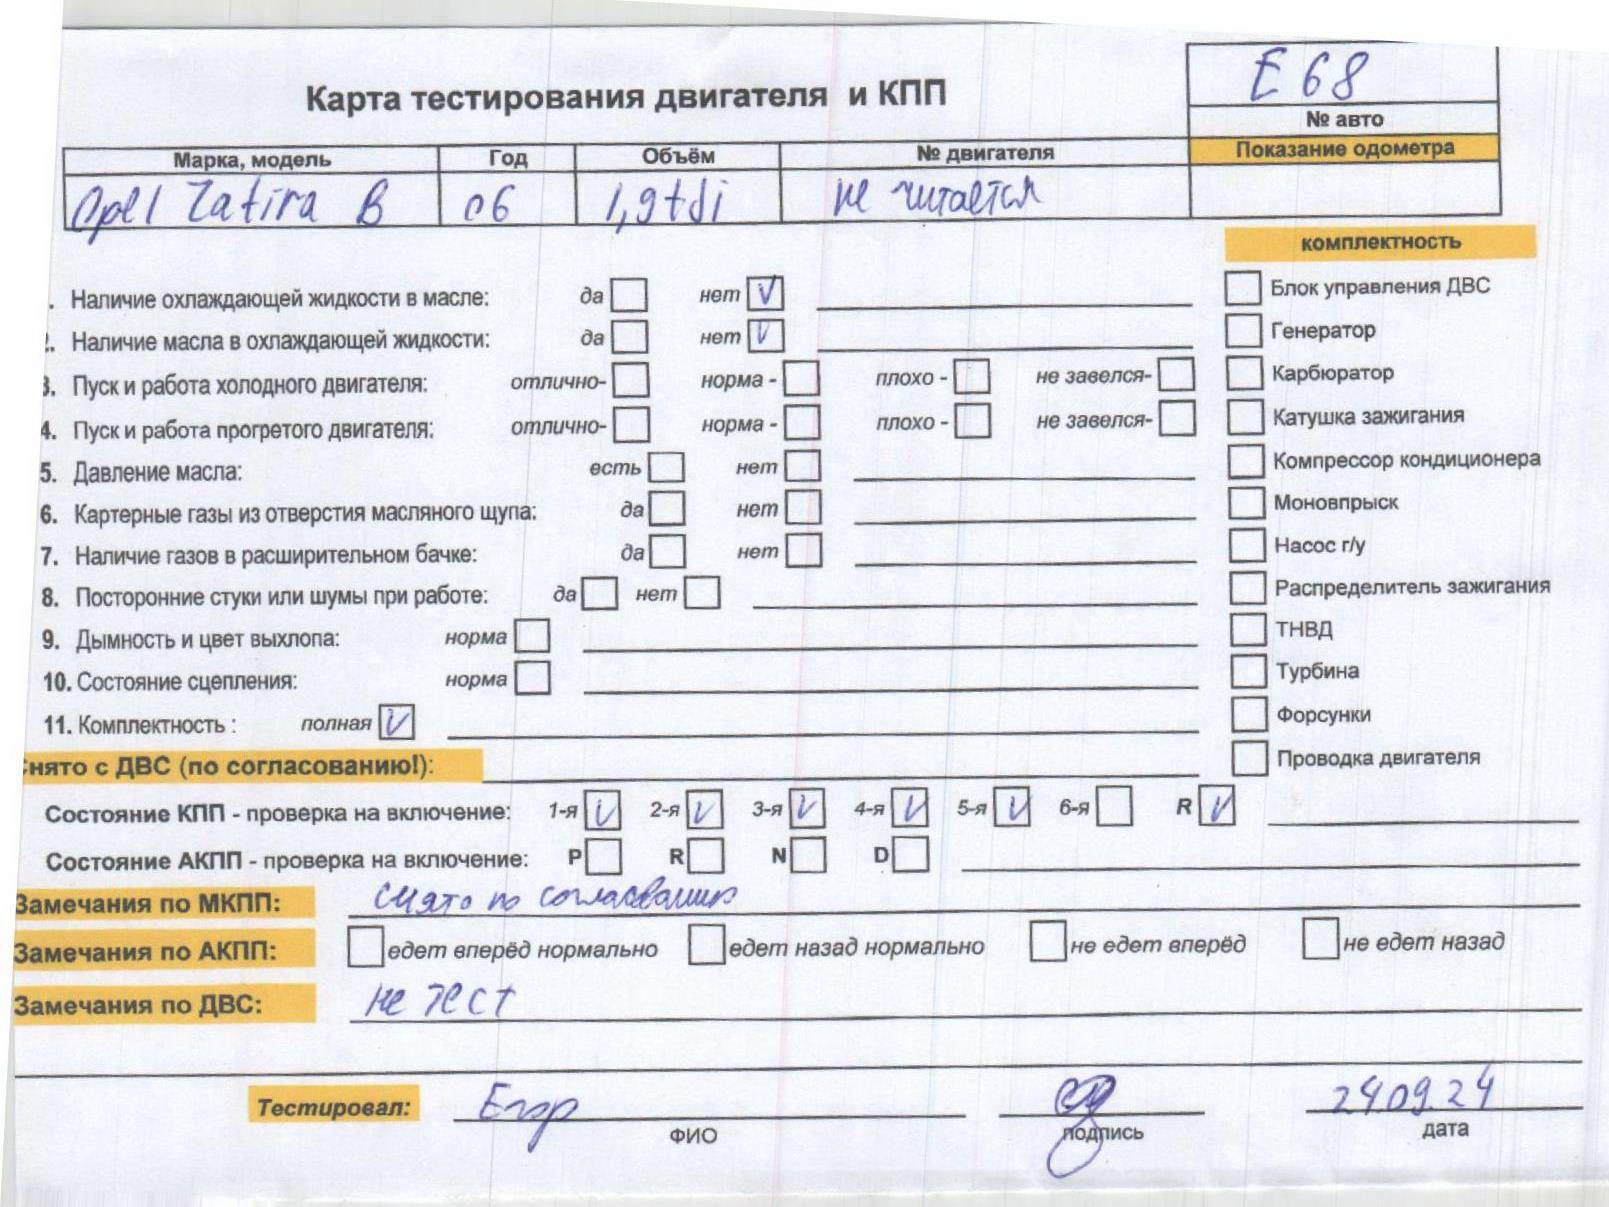 E 68
Карта тестирования двигателя и КПП
№ авто
Марка, модель Год Объём № двигателя Показание одометра
Opel Zafira B 06 1,9tdi не читается
комплектность
. Наличие охлаждающей жидкости в масле: да нет V Блок управления ДВС
2. Наличие масла в охлаждающей жидкости: да нет V Генератор
3. Пуск и работа холодного двигателя: отлично- норма - плохо - не завелся- Карбюратор
4. Пуск и работа прогретого двигателя: отлично- норма - плохо - не завелся- Катушка зажигания
5. Давление масла: есть нет Компрессор кондиционера
6. Картерные газы из отверстия масляного щупа: да нет Моновпрыск
7. Наличие газов в расширительном бачке: да нет Насос г/у
8. Посторонние стуки или шумы при работе: да нет Распределитель зажигания
9. Дымность и цвет выхлопа: норма ТНВД
10. Состояние сцепления: норма Турбина
11. Комплектность : полная V Форсунки
Снято с ДВС (по согласованию!): Проводка двигателя
Состояние КПП - проверка на включение: 1-я V 2-я V 3-я V 4-я V 5-я V 6-я R V
Состояние АКПП - проверка на включение: P R N D
Замечания по МКПП: снято по согласованию
Замечания по АКПП: едет вперёд нормально едет назад нормально не едет вперёд не едет назад
Замечания по ДВС: не тест
Тестировал: Егор 24.09.24
ФИО подпись дата